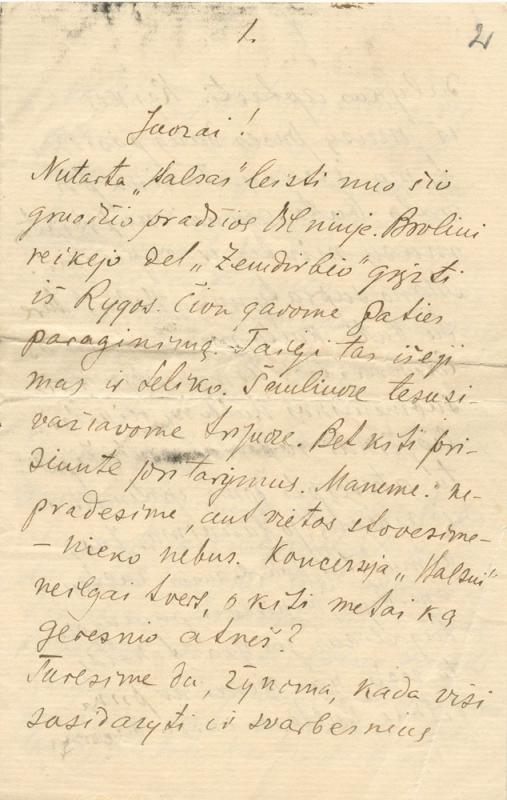 1. 2
Juozai!
Nutarta „Halsas" leisti nuo šio
gruodžio pradžios Vilniuje. Broliui
reikėjo dėl „Žemdirbio" grįžti
iš Rygos. Čion gavome paties
paraginimą. Taigi tas išėji-
mas ir liko. Šiauliuose tesusi-
važiavome trijuose. Bet kiti pri-
siuntė pritarymus. Manėme: ne-
pradėsime, ant vietos stovėsime-
- nieko nebus. Koncesija „Halsui"
neilgai tvers, o kiti metai ką
geresnio atneš?
Turėsime du, žynoma, kada visi
susidaryti ir svarbesnius